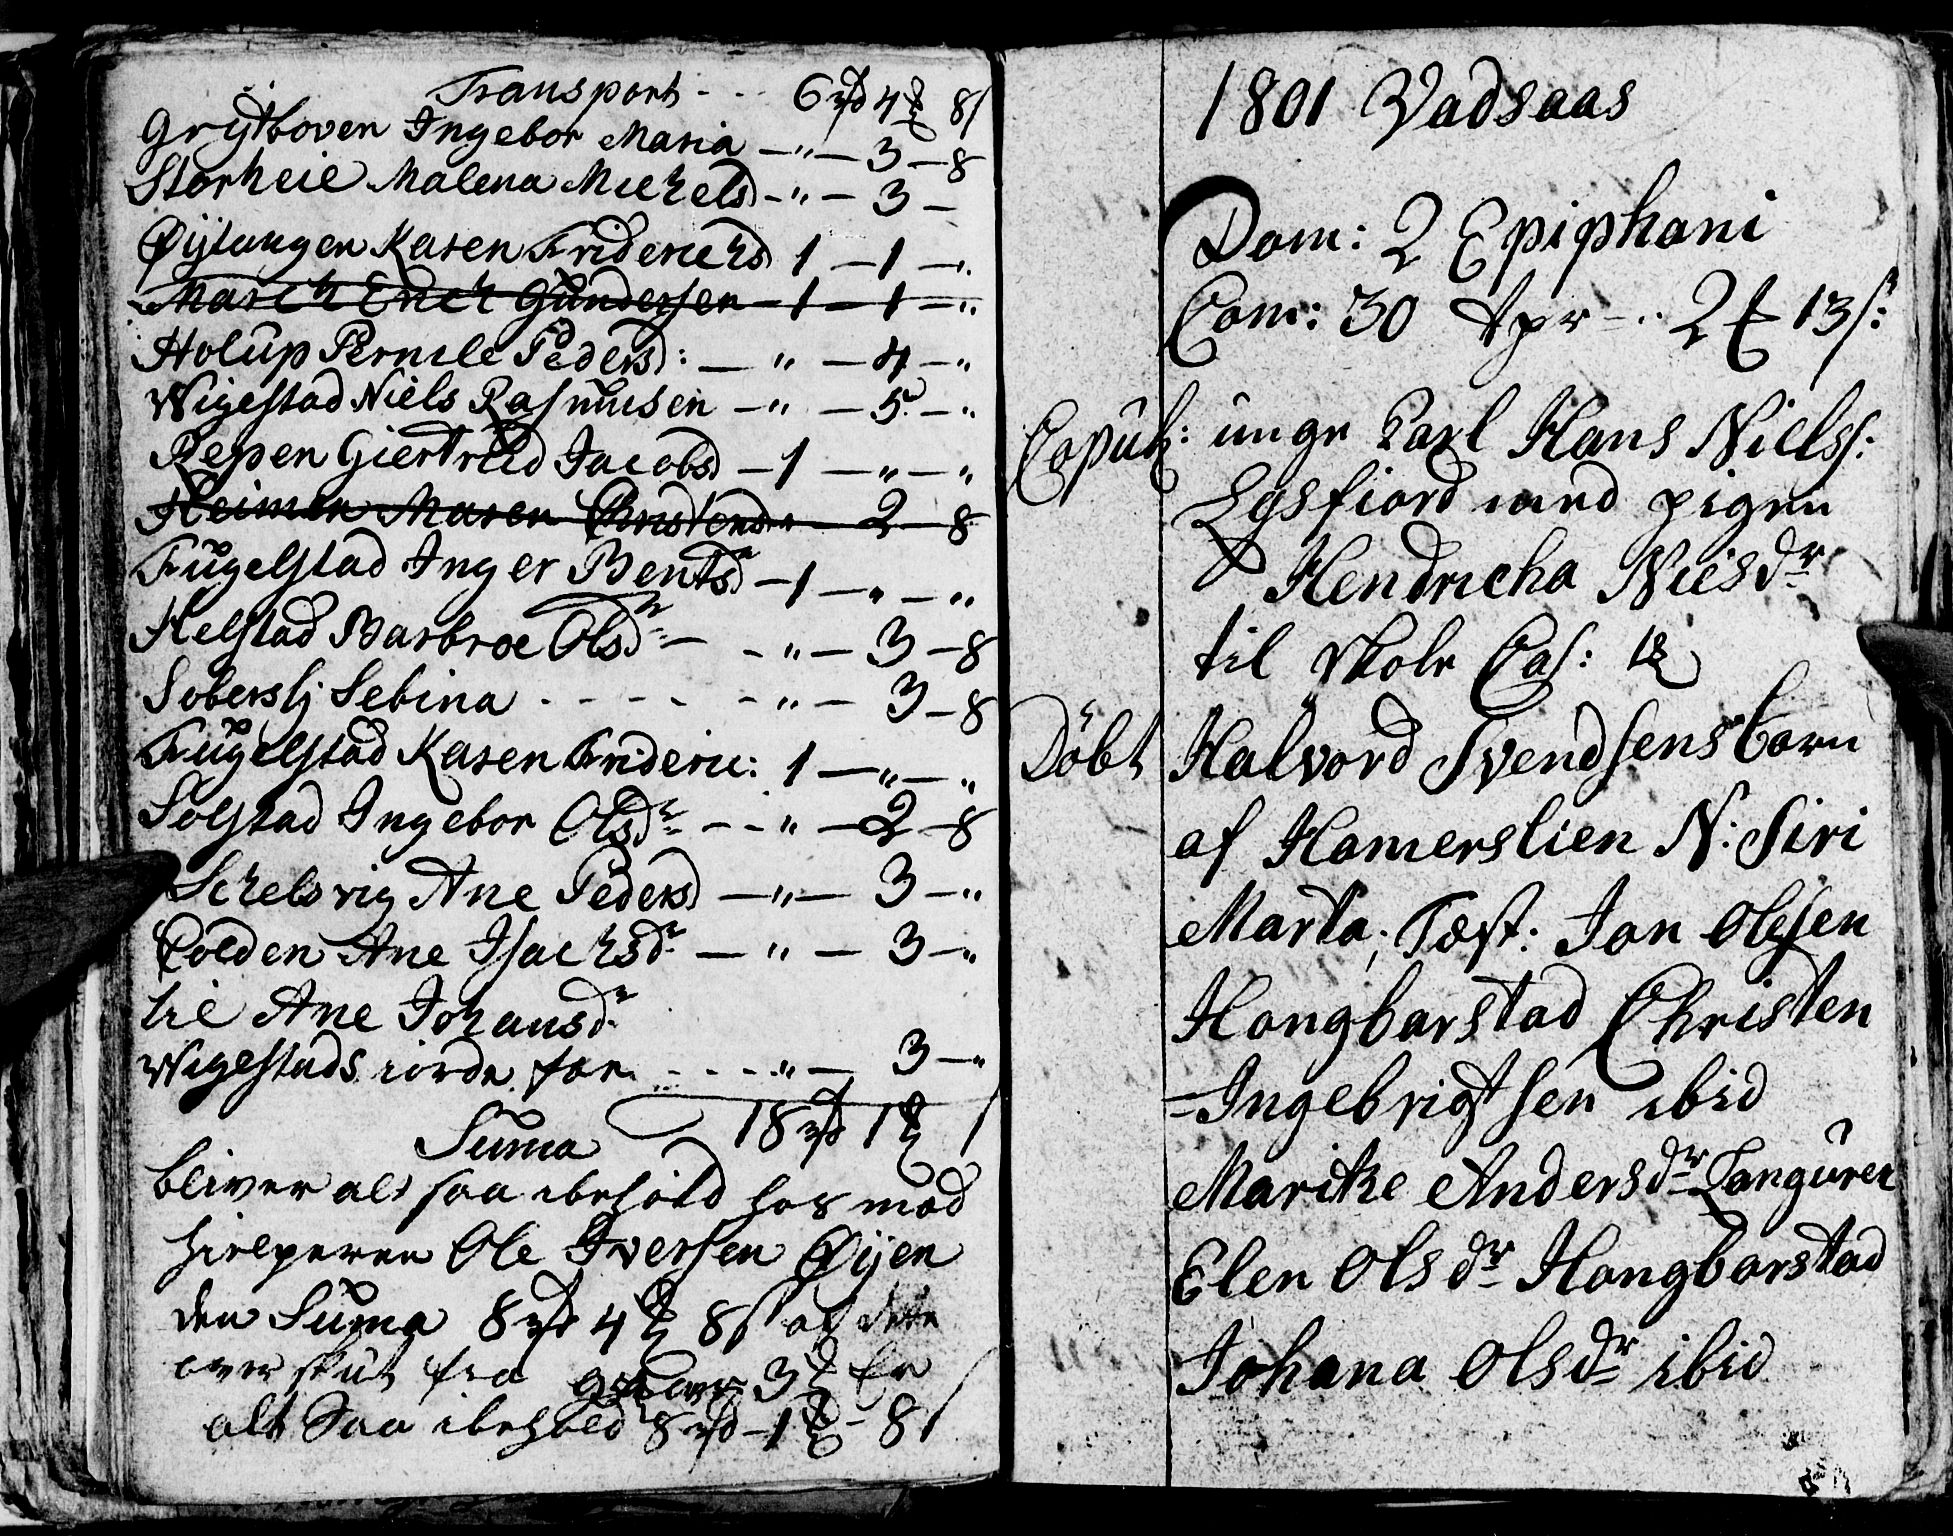 Transport - - - 6 rd 4 ₰ 8 s
Grytboven Ingebor Maria — " — 3 — 8
Storheie Malena Michelsd — " — 3 —
Øytangen Karen Friderichsd 1 — 1 — "
March Erich Gundersen — 1 — 1 — "
Holup Pernile Pedersd: — " — 4 — "
Wigestad Niels Rasmusen — " — 5 — "
Repen Giertrud Jacobsd — 1 — " — "
Heimen Maren Christensd — 2 — 8
Fugelstad Inger Bentsd — 1 — " — "
Helstad Barbroe Olsdr — - " — 3 — 8
Sobersli Sebina - - - - - " — 3 — 8
Fugelstad Karen Frideric: 1 — " — "
Solstad Ingebor Olsdr - - " — 2 — 8
Schelsvig Ane Pedersd — " — 3 — "
Colden Ane Isachsdr — " — 3 — "
lie Ane Johansdr
Wigestads iorde for - - - " — 3 — "
Suma 18 rd 1 ₰
bliver alt saa ibehold hos med
hielperen Ole Iversen Øyen
den Suma 8 rd 4 ₰ 8 s
over skut fra 3 ₰ er
alt Saa ibehold 8 rd — 1 ₰ — 8 s
1801 Vadsaas
Dom: 2 Epiphani
Com: 30 - " 2 ₰ 13 s:
Copul: unge Karl Hans Nielss:
Egsfiord med pigen
Hendricha Nielsdr
til Skole Cas:
Døbt Halvord Svendsens barn
af Hamerslien N: Siri
Marta; Tæst: Jon Olesen
Hongbarstad Christen
=Ingebrigtsen ibid
Marike Andersdr Tanguren
Elen Olsdr Hongbarstad
Johana Olsdr ibid